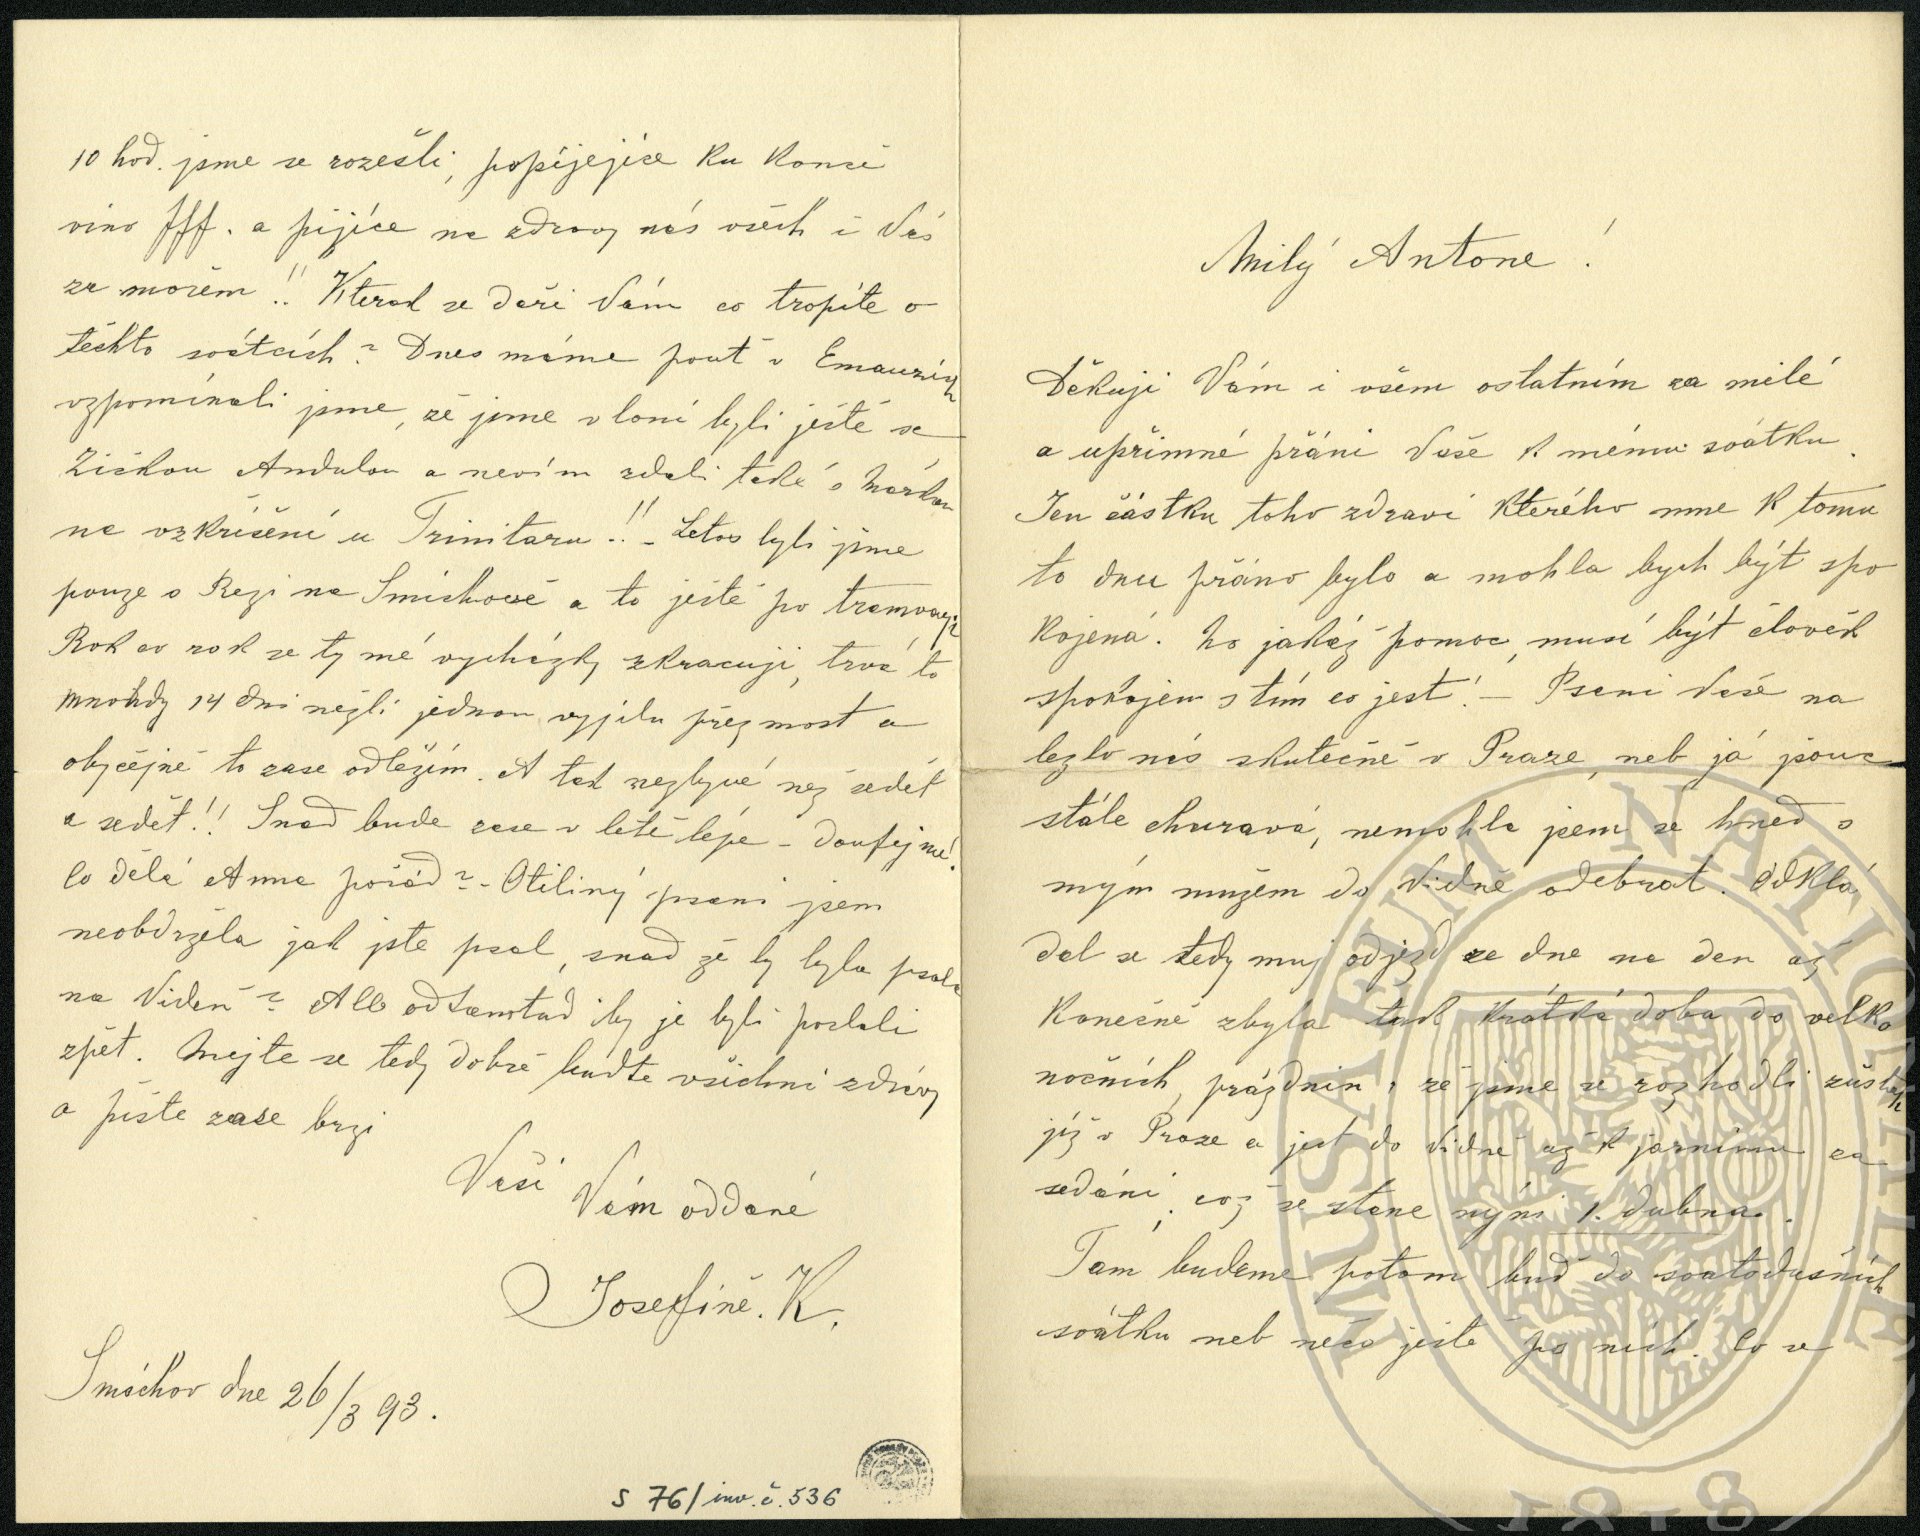 Milý Antone!
Děkuji Vám i všem ostatním za milé
a upřimné přání Vaše k mému svátku.
Jen částku toho zdraví kterého mne k tomu
to dnu přáno bylo a mohla bych být spo
kojená. No jakáž pomoc, musí být člověk
spokojen s tím co jest! – Psaní Vaše na
lezlo nás skutečně v Praze, neb já jsouc
stále churavá, nemohla jsem se hned s
mým mužem do Vídně odebrat. Odklá
dal se tedy muj odjezd ze dne na den až
konečně zbyla tak krátká doba do velko
nočních prázdnin, že jsme se rozhodli zůstat
již v Praze a jet do Vídně až k jarnímu za
sedání, což se stane nýní 1. dubna.
Tam budeme potom buď do svatodušních
svátku neb něco ještě po nich. Co se
10 hod. jsme se rozešli, popíjejíce ku konci
víno fff. a pijíce na zdraví nás všech i Vás
za mořem!! Kterak se daří Vám co tropíte o
těchto svátcích? Dnes máme pouť v Emauzích
vzpomínali jsme, že jsme vloni byli ještě se
Ziškou Andulou a nevím zdali také s Mařkou
na vzkříšení u Trinitaru!! – Letos byli jsme
pouze s Rezi na Smíchově a to ještě po tramvayi
Rok co rok se ty mé vycházky zkracuji, trvá to
mnohdy 14 dni nežli jednou vyjdu přez most a
obyčejně to zase odležím. A tak nezbývá než sedět
a sedět!! Snad bude zase v létě lépe – doufejme!
Co dělá Anna pořád? – Otiliný psaní jsem
neobdržela jak jste psal, snad že by byla psala
na Videň? Ale odtamtud by je byli poslali
zpět. Mejte se tedy dobře buďte všichni zdrávy
a pište zase brzi
Vaší
Vám oddané
Josefině. K.
Smíchov dne 26/3 93.
S 76/ inv. č. 536
MUSAEUM NATIONALE
1818